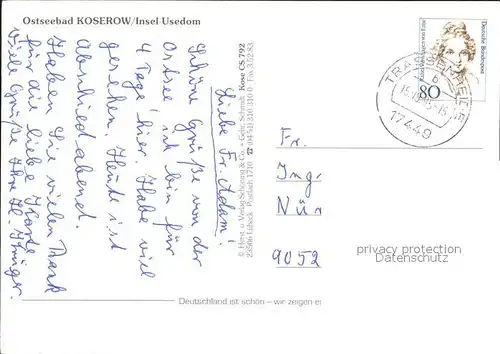 Ostseebad KOSEROW/Insel Usedom
Liebe Fr. Adam!
Schöne Grüße von der
Ostsee. Ich bin für
4 Tage hier. Habe viel
gesehen. Heute ist
Abschiedabend.
Haben Sie vielen Dank
für die liebe Karte
Viele Grüße Ihre
© Horst u. Verlag Schöning & Co. + Gebr. Schmidt
23506 Lübeck Postfach 1710
Kose CS 792
Deutschland ist schön – wir zeigen es
Deutsche Bundespost
80
TRASSENHEIDE
b
17449
Fr.
Ing
Nür
9052
privacy protection
Datenschutz